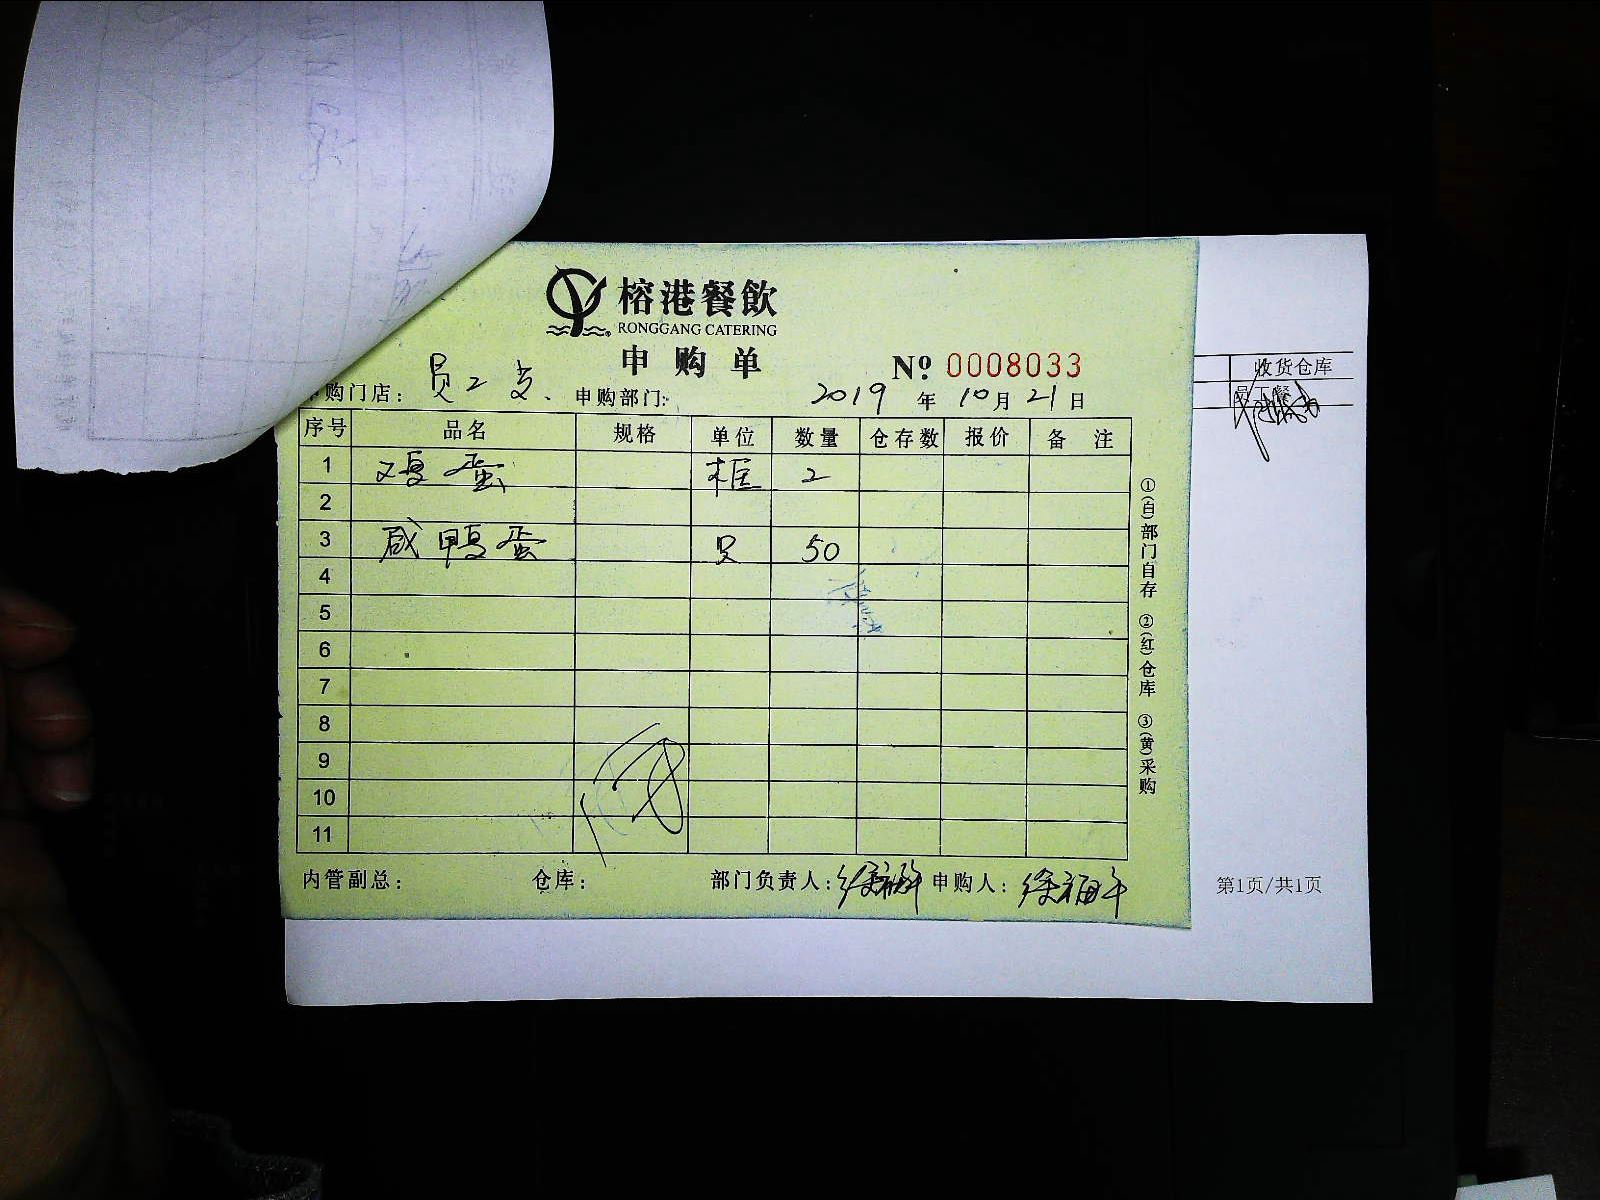 榕港餐飲
RONGGANG CATERING
申购单
№ 0008033
购门店： 员工 申购部门： 2019 年 10 月 21 日
序号 品名 规格 单位 数量 仓存数 报价 备注
1 鸡蛋 框 2
2
3 咸鸭蛋 只 50
4
5
6
7
8
9
10
11
内管副总： 仓库： 部门负责人： 徐福年 申购人： 徐福年
①(白)部门自存 ②(红)仓库 ③(黄)采购
收货仓库
员工餐
第1页/共1页